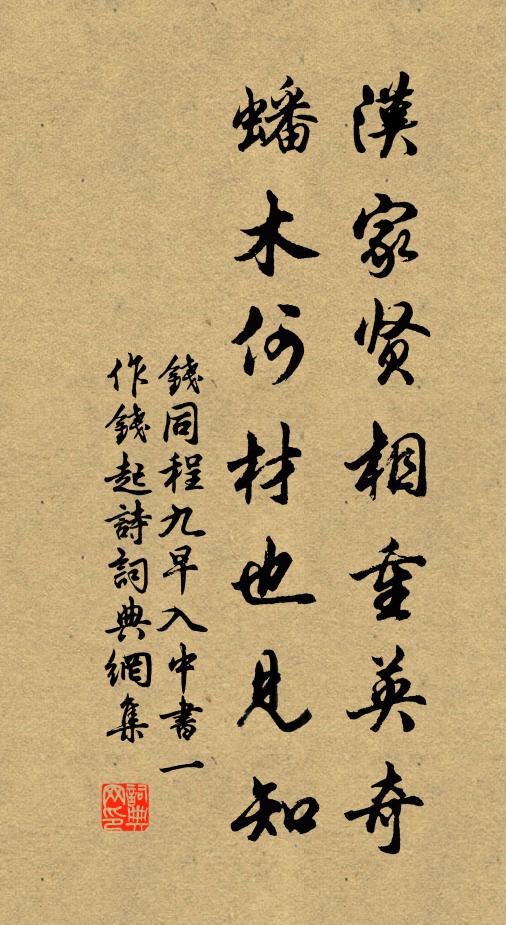 漢家贤相重英奇
蟠木何材也見知
錢同程九早入中書一
作錢起詩詞典網集
詞典
网印